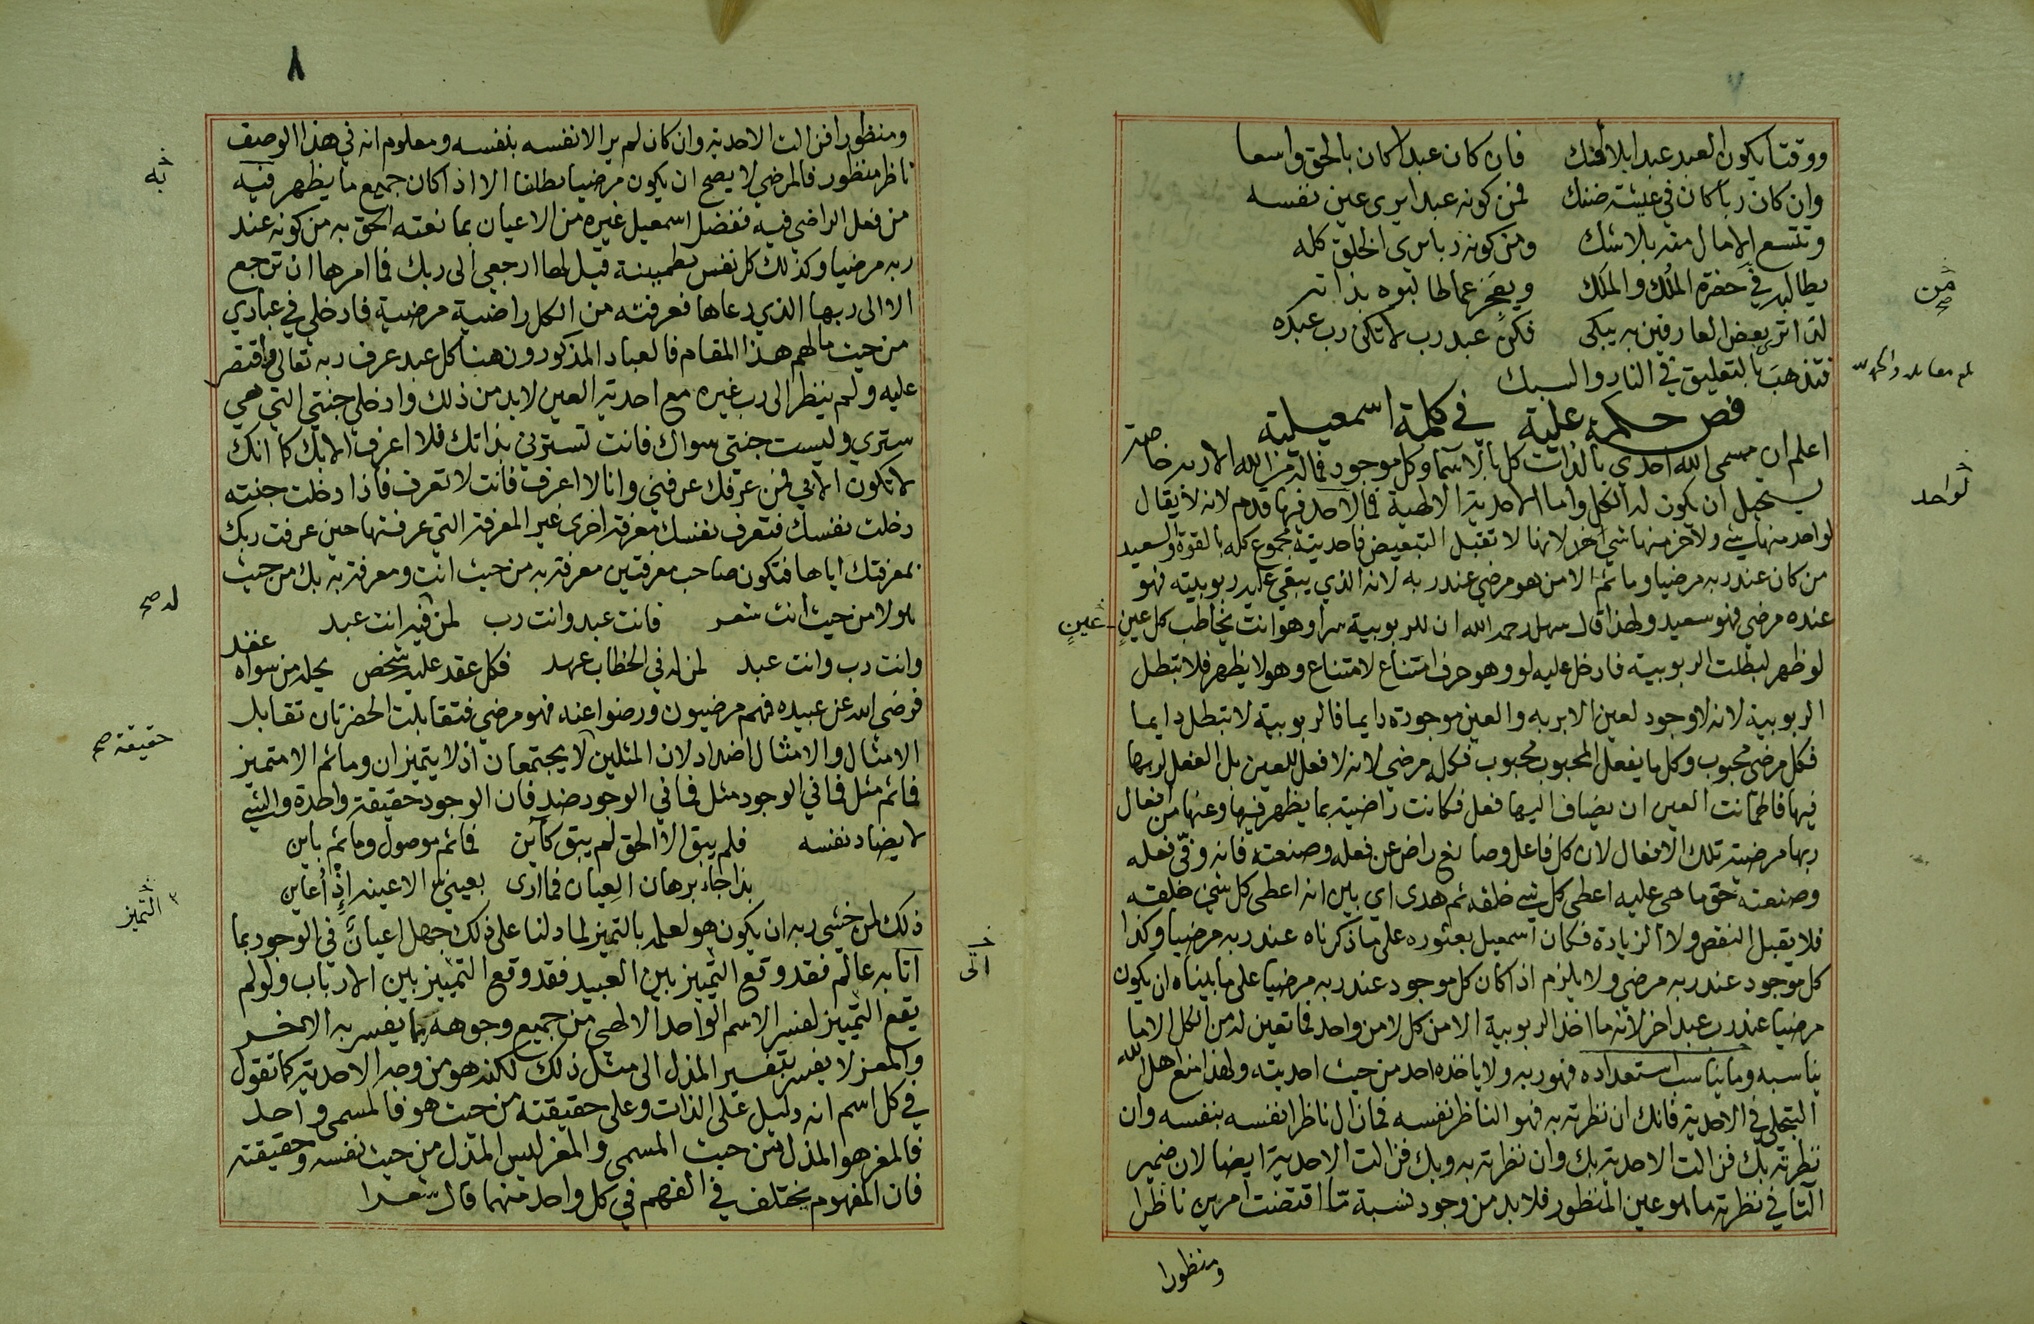 ٧
ووقتا يكون العبد عبدا بلا افك    فان كان عبدا كان بالحق واسعا
وان كان ربا كان في عيشة ضنك    فمن كونه عبدا يرى عين نفسه
وتتسع الامال منه بلا شك    ومن كونه ربا يرى الخلق كله
يطالبه في حضرة الملك والملك    ويعجز عما طالبوه بذاته
لذا تر بعض العارفين به يبكي    فكن عبد رب لا تكن رب عبده
فتذهب بالتعليق في النار والسبك
فص حكمة علية في كلمة اسمعيلية
اعلم ان مسمى الله احدي بالذات كل بالاسما وكل موجود فما له من الله الا ربه خاصة
يستحيل ان يكون له الكل واما الاحدية الالهية فما لاحد فيها قدم لانه لا يقال
لواحد منها شيء ولاخر منها شي اخر لانها لا تقبل التبعيض فاحديته مجموع كله بالقوة والسعيد
من كان عند ربه مرضيا وما ثم الا من هو مرضي عند ربه لانه الذي يبقي عليه ربوبيته فهو
عنده مرضي فهو سعيد ولهذا قال سهل رحمه الله ان للربوبية سرا وهو انت يخاطب كل عين
لو ظهر لبطلت الربوبية فادخل عليه لو وهو حرف امتناع لامتناع وهو لا يظهر فلا تبطل
الربوبية لانه لا وجود لعين الا بربه والعين موجودة دايما فالربوبية لا تبطل دايما
فكل مرضي محبوب وكل ما يفعل المحبوب محبوب فكله مرضي لانه لا فعل للعين بل الفعل لربها
فيها فاطمانت العين ان يضاف اليها فعل فكانت راضية بما يظهر فيها وعنها من افعال
ربها مرضية تلك الافعال لان كل فاعل وصانع راض عن فعله وصنعته فانه وفى فعله
وصنعته حق ما هي عليه اعطى كل شيء خلقه ثم هدى اي بين انه اعطى كل شي خلقه
فلا يقبل النقص ولا الزيادة فكان اسمعيل بعثوره على ما ذكرناه عند ربه مرضيا وكذا
كل موجود عند ربه مرضي ولا يلزم اذا كان كل موجود عند ربه مرضيا على ما بيناه ان يكون
مرضيا عند رب عبد اخر لانه ما اخذ الربوبية الا من كل لا من واحد فما تعين له من الكل الا ما
يناسبه وما يناسب استعداده فهو ربه ولا ياخذه احد من حيث احديته ولهذا منع اهل الله
التجلي في الاحدية فانك ان نظرته به فهو الناظر نفسه فما زال ناظرا نفسه بنفسه وان
نظرته بك فزالت الاحدية بك وان نظرته به وبك فزالت الاحدية ايضا لان ضمير
التا في نظرته ما هو عين المنظور فلا بد من وجود نسبة ما اقتضت امرين ناظرا
ومنظورا
من
صح
لواحد
عين
٨
ومنظورا فزالت الاحدية وان كان لم ير الا نفسه بنفسه ومعلوم انه في هذا الوصف
ناظر منظور فالمرضي لا يصح ان يكون مرضيا مطلقا الا اذا كان جميع ما يظهر فيه
من فعل الراضي فيه ففضل اسمعيل غيره من الاعيان بما نعته الحق به من كونه عند
ربه مرضيا وكذلك كل نفس مطمينة قيل لها ارجعي الى ربك فما امرها ان ترجع
الا الى ربها الذي دعاها فعرفته من الكل راضية مرضية فادخلي في عبادي
من حيث ما لهم هذا المقام فالعباد المذكورون هنا كل عبد عرف ربه تعالى واقتصر
عليه ولم ينظر الى رب غيره مع احدية العين لا بد من ذلك وادخلي جنتي التي هي
ستري وليست جنتي سواك فانت تسترني بذاتك فلا اعرف الا بك كما انك
لا تكون الا بي فمن عرفك عرفني وانا لا اعرف فانت لا تعرف فاذا دخلت جنته
دخلت نفسك فتعرف نفسك معرفة اخرى غير المعرفة التي عرفتها حين عرفت ربك
بمعرفتك اياها فتكون صاحب معرفتين معرفة به من حيث انت ومعرفة به بك من حيث
هو لا من حيث انت شعر    فانت عبد وانت رب    لمن فيه انت عبد
وانت رب وانت عبد    لمن له في الخطاب عهد    فكل عقد عليه شخص    يحله من سواه عقد
فرضي الله عن عبيده فهم مرضيون ورضوا عنه فهو مرضي فتقابلت الحضرتان تقابل
الامثال والامثال اضداد لان المثلين لا يجتمعان اذ لا يتميزان وما ثم الا متميز
فما ثم مثل فما في الوجود مثل فما في الوجود ضد فان الوجود حقيقة واحدة والشيء
لا يضاد نفسه    فلم يبق الا الحق لم يبق كاين    فما ثم موصول وما ثم باين
بذا جاء برهان العيان فما ارى    بعيني الا عينه اذ اعاين
ذلك لمن خشي ربه ان يكون هو لعلمه بالتميز لما دلنا على ذلك جهل اعيان في الوجود بما
اتا به عالم فقد وقع التمييز بين العبيد فقد وقع التمييز بين الارباب ولو لم
يقع التمييز لفسر الاسم الواحد الالهي من جميع وجوهه بما يفسر به الاخر
والمعز لا يفسر بتفسير المذل الى مثل ذلك لكنه هو من وجه الاحدية كما تقول
في كل اسم انه دليل على الذات وعلى حقيقته من حيث هو فالمسمى واحد
فالمعز هو المذل من حيث المسمى والمعز ليس المذل من حيث نفسه وحقيقته
فان المفهوم يختلف في الفهم في كل واحد منهما قال شعرا
به
له صح
حقيقة صح
التميز
الى